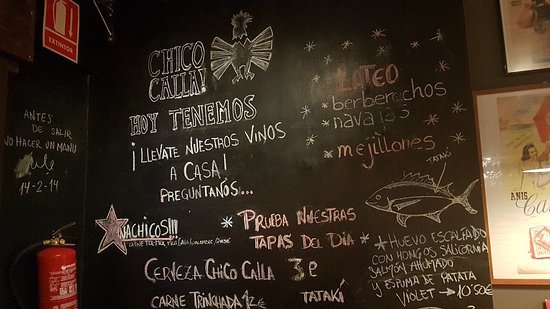 EXTINTOR
ANTES
DE SALIR
NO HACER UN MANU
14-2-14
CHICO
CALLA!
HOY TENEMOS
¡LLEVATE NUESTROS VINOS
A CASA!
PREGUNTANOS...
NACHICOS!!!
* PRUEBA NUESTRAS
TAPAS DEL DÍA
CERVEZA CHICO CALLA 3€
CARNE TRINCHADA 12€
* LATEO
* berberechos
* navajas
* mejillones
TATAKI
TATAKÍ
* HUEVO ESCALFADO
CON HONGOS SALICORNIA
SALMÓN AHUMADO
Y ESPUMA DE PATATA
VIOLET → 10'50€
ANIS